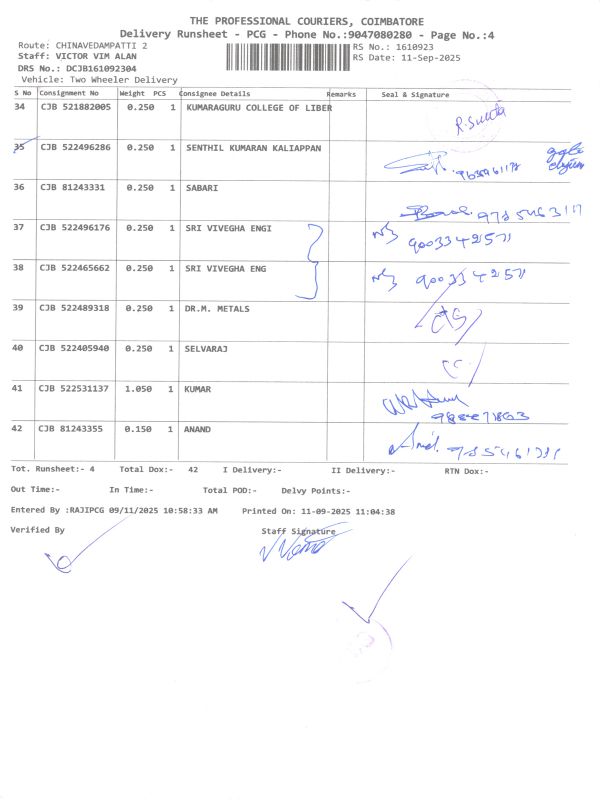 THE PROFESSIONAL COURIERS, COIMBATORE
Delivery Runsheet - PCG - Phone No.:9047080280 - Page No.:4
Route: CHINAVEDAMPATTI 2 RS No.: 1610923
Staff: VICTOR VIM ALAN RS Date: 11-Sep-2025
DRS No.: DCJB161092304
Vehicle: Two Wheeler Delivery
S No Consignment No Weight PCS Consignee Details Remarks Seal & Signature
34 CJB 521882005 0.250 1 KUMARAGURU COLLEGE OF LIBER
35 CJB 522496286 0.250 1 SENTHIL KUMARAN KALIAPPAN
36 CJB 81243331 0.250 1 SABARI
37 CJB 522496176 0.250 1 SRI VIVEGHA ENGI 9003342571
38 CJB 522465662 0.250 1 SRI VIVEGHA ENG 9003342571
39 CJB 522489318 0.250 1 DR.M. METALS
40 CJB 522405940 0.250 1 SELVARAJ
41 CJB 522531137 1.050 1 KUMAR
42 CJB 81243355 0.150 1 ANAND
Tot. Runsheet:- 4 Total Dox:- 42 I Delivery:- II Delivery:- RTN Dox:-
Out Time:- In Time:- Total POD:- Delvy Points:-
Entered By :RAJIPCG 09/11/2025 10:58:33 AM Printed On: 11-09-2025 11:04:38
Verified By Staff Signature